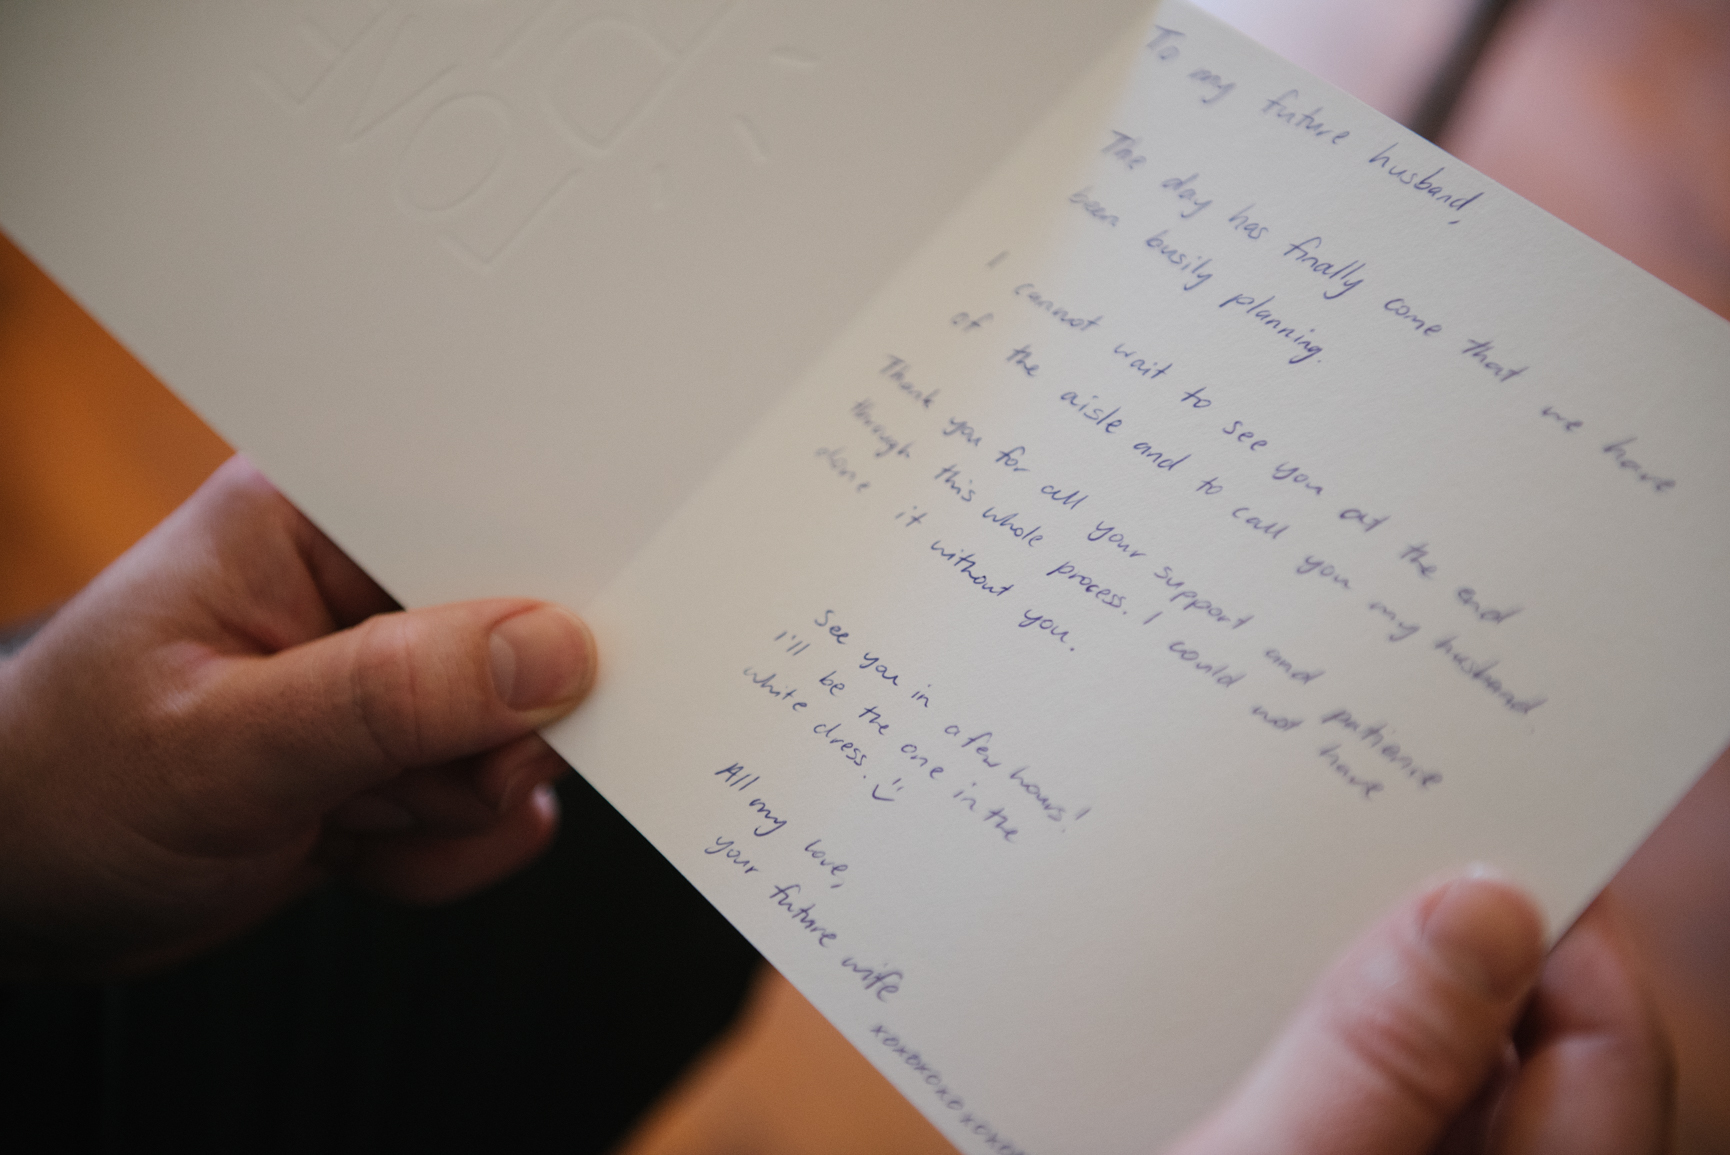 To my future husband,
The day has finally come that we have
been busily planning.
I cannot wait to see you at the end
of the aisle and to call you my husband.
Thank you for all your support and patience
through this whole process. I could not have
done it without you.
See you in a few hours!
I'll be the one in the
white dress.
All my love,
your future wife
xoxoxoxoxoxox